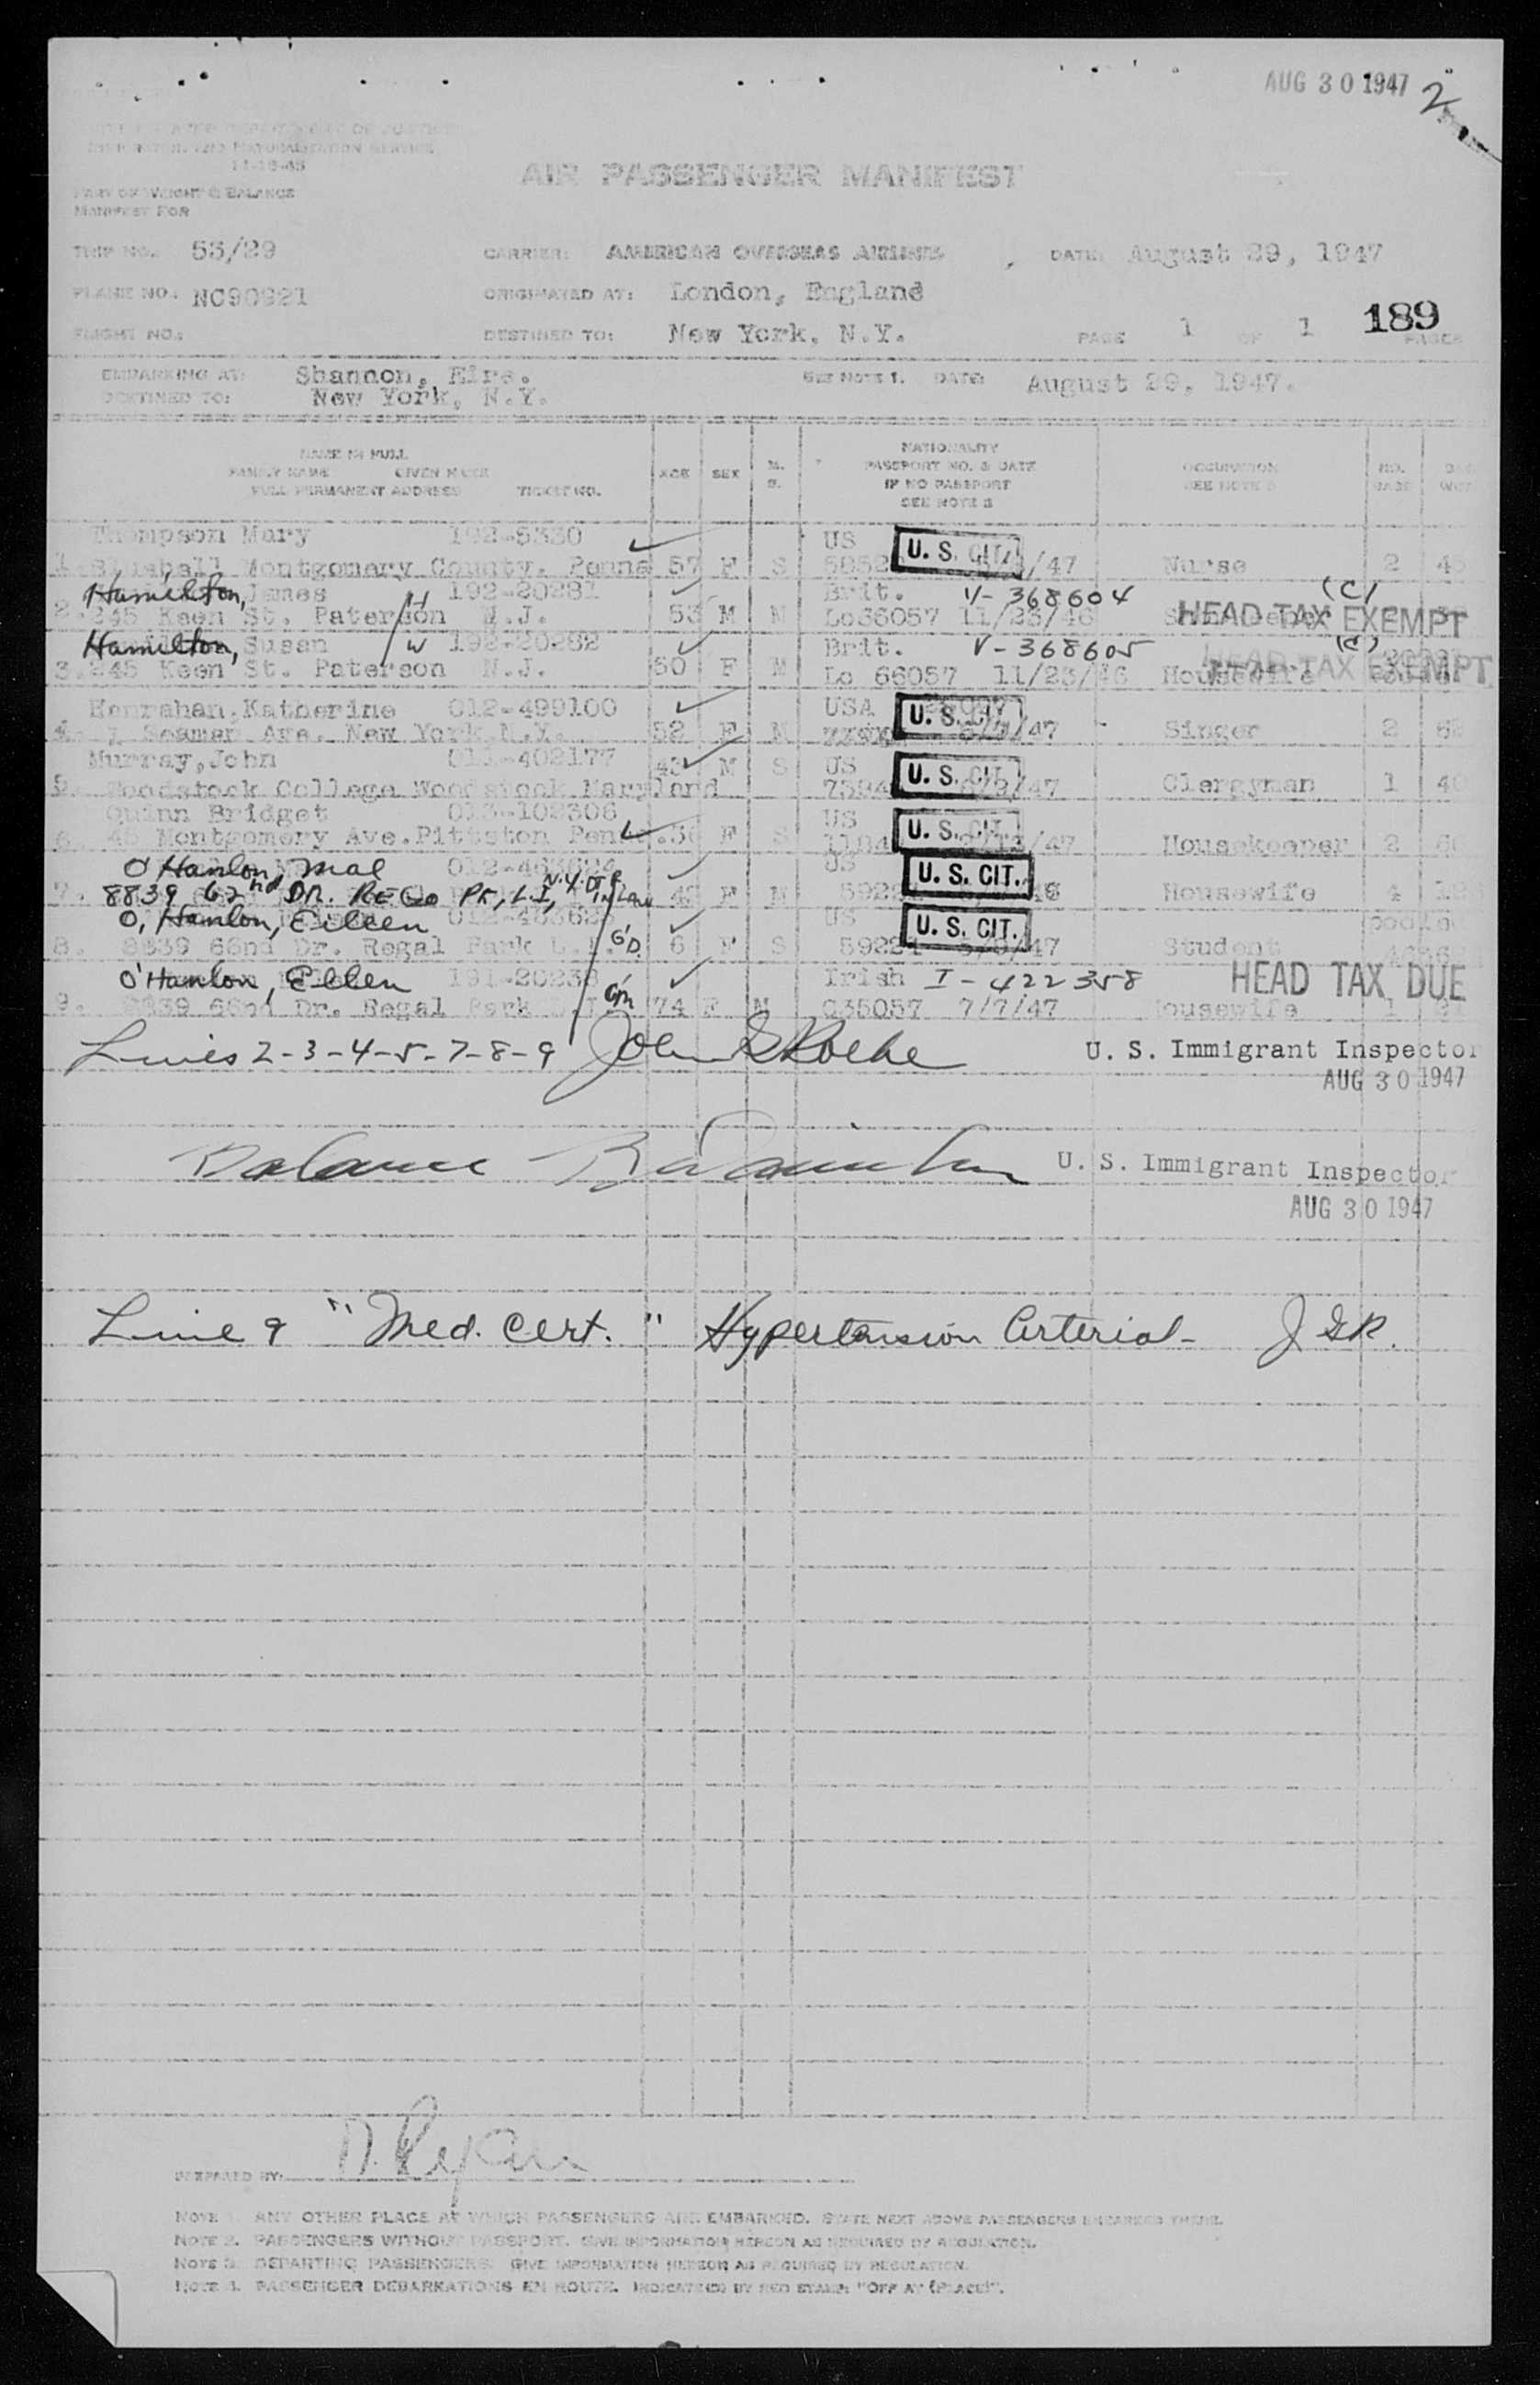 AUG 30 1947 2
UNITED STATES DEPARTMENT OF JUSTICE
IMMIGRATION AND NATURALIZATION SERVICE
11-16-45
AIR PASSENGER MANIFEST
PART OF WEIGHT & BALANCE
MANIFEST FOR
TRIP NO. 53/29 CARRIER: AMERICAN OVERSEAS AIRLINES DATE: August 29, 1947
PLANE NO.: NC90921 ORIGINATED AT: London, England
FLIGHT NO.: DESTINED TO: New York, N.Y. PAGE 1 OF 1 PAGES 189
EMBARKING AT: Shannon, Eire. SEE NOTE 1. DATE: August 29, 1947.
DESTINED TO: New York, N.Y.
NAME IN FULL
FAMILY NAME GIVEN NAME
FULL PERMANENT ADDRESS TICKET NO.
AGE SEX M. S.
NATIONALITY
PASSPORT NO. & DATE
IF NO PASSPORT
SEE NOTE 2
OCCUPATION
SEE NOTE 3
NO. BAGS
Thompson Mary 192-5330 US U. S. CIT.
1. Montgomery County. Penna 57 F S /47 Nurse 2
Hamilton, James H 192-20281 Brit. V-368604 (C)
2. 245 Keen St. Paterson N.J. 53 M M Lo66057 11/23/46 HEAD TAX EXEMPT
Hamilton, Susan W 192-20282 Brit. V-368605 (C)
3. 245 Keen St. Paterson N.J. 50 F M Lo 66057 11/23/46 Housewife HEAD TAX EXEMPT
Henrahan, Katherine 012-499100 USA U. S. CIT.
4. 7 Seaman Ave. New York, N.Y. 52 F M /47 Singer 2
Murray, John 013-402177 43 M S US U. S. CIT.
5. Woodstock College Woodstock Maryland 7594 /47 Clergyman 1
Quinn Bridget 013-102306 US U. S. CIT.
6. 45 Montgomery Ave. Pittston Penna. F S /47 Housekeeper 2
O'Hanlon, Mae US U. S. CIT.
7. 8839 62nd DR. REGO PK, L.I, N.Y. D. in Law F M Housewife 4
O'Hanlon, Eileen US U. S. CIT.
8. 8839 66nd Dr. Regal Park G'D. 6 F S /47 Student
O'Hanlon, Ellen 191-20238 G'm Irish I-422358 HEAD TAX DUE
9. 8839 66nd Dr. Regal Park 74 F M 035057 7/7/47 Housewife 1
Lines 2-3-4-5-7-8-9 U. S. Immigrant Inspector
AUG 30 1947
Balance U. S. Immigrant Inspector
AUG 30 1947
Line 9 "Med. Cert." Hypertension Arterial- JGR.
PREPARED BY: Ryan
NOTE 1. ANY OTHER PLACE AT WHICH PASSENGERS ARE EMBARKED. STATE NEXT ABOVE PASSENGERS EMBARKED THERE.
NOTE 2. PASSENGERS WITHOUT PASSPORT. GIVE INFORMATION HEREON AS REQUIRED BY REGULATION.
NOTE 3. DEPARTING PASSENGERS. GIVE INFORMATION HEREON AS REQUIRED BY REGULATION.
NOTE 4. PASSENGER DEBARKATIONS EN ROUTE. INDICATED BY RED STAMP "OFF AT (PLACE)".